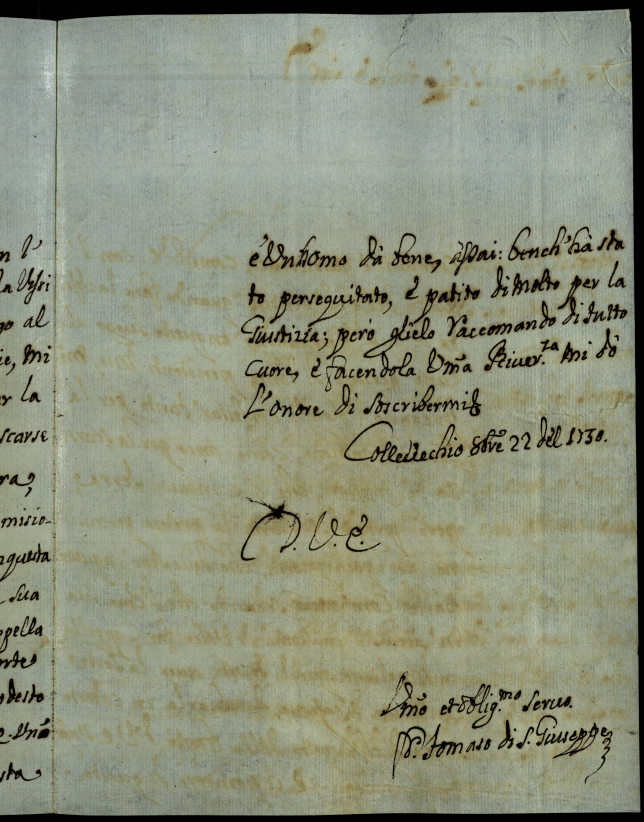 n l'
la Vessi
go al
ie, mi
er la
scarse
ra,
misio-
questa
sua
ppella
orte
odesto
e. Vmã
sta
è Vnhomo dà bene, assai: bench'hà sta
to perseguitato, è patito di molto per la
Giustizia; però glielo raccomando di tutto
cuore, è facendola Vmã River.ta mi dò
L'onore di soscribermi
Collecchio 8bre 22 del 1730.
D. V. E.
Vmõ et oblig.mo seruo.
Tomaso di S. Giuseppe